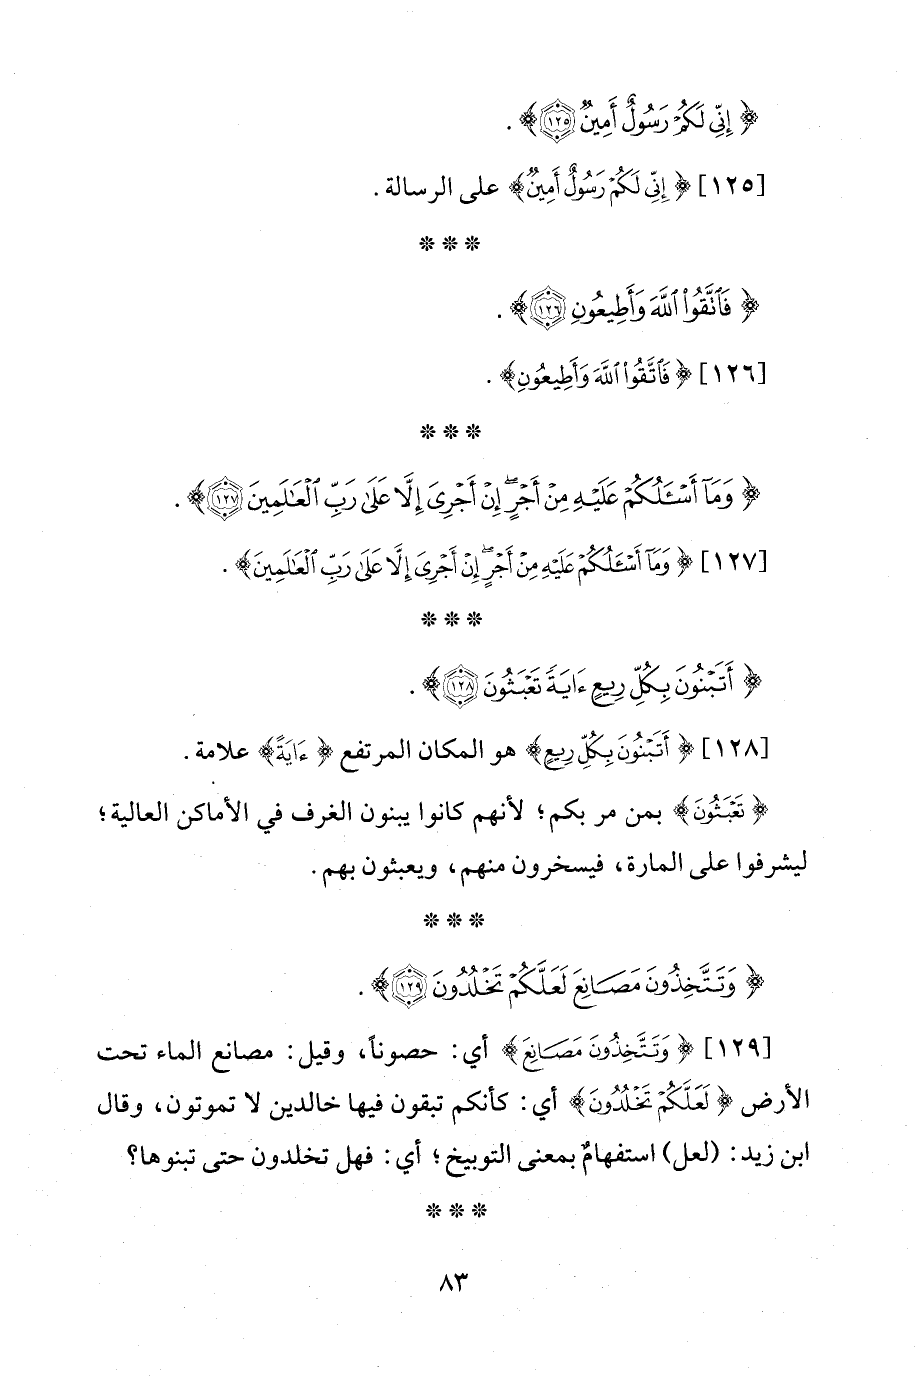 ﴿ إِنِّي لَكُمْ رَسُولٌ أَمِينٌ ۝١٢٥ ﴾ .
[١٢٥] ﴿ إِنِّي لَكُمْ رَسُولٌ أَمِينٌ ﴾ على الرسالة .
* * *
﴿ فَٱتَّقُوا۟ ٱللَّهَ وَأَطِيعُونِ ۝١٢٦ ﴾ .
[١٢٦] ﴿ فَٱتَّقُوا۟ ٱللَّهَ وَأَطِيعُونِ ﴾ .
* * *
﴿ وَمَآ أَسْـَٔلُكُمْ عَلَيْهِ مِنْ أَجْرٍ ۖ إِنْ أَجْرِىَ إِلَّا عَلَىٰ رَبِّ ٱلْعَـٰلَمِينَ ۝١٢٧ ﴾ .
[١٢٧] ﴿ وَمَآ أَسْـَٔلُكُمْ عَلَيْهِ مِنْ أَجْرٍ ۖ إِنْ أَجْرِىَ إِلَّا عَلَىٰ رَبِّ ٱلْعَـٰلَمِينَ ﴾ .
* * *
﴿ أَتَبْنُونَ بِكُلِّ رِيعٍ ءَايَةً تَعْبَثُونَ ۝١٢٨ ﴾ .
[١٢٨] ﴿ أَتَبْنُونَ بِكُلِّ رِيعٍ ﴾ هو المكان المرتفع ﴿ ءَايَةً ﴾ علامة .
﴿ تَعْبَثُونَ ﴾ بمن مر بكم؛ لأنهم كانوا يبنون الغرف في الأماكن العالية؛
ليشرفوا على المارة، فيسخرون منهم، ويعبثون بهم.
* * *
﴿ وَتَتَّخِذُونَ مَصَانِعَ لَعَلَّكُمْ تَخْلُدُونَ ۝١٢٩ ﴾ .
[١٢٩] ﴿ وَتَتَّخِذُونَ مَصَانِعَ ﴾ أي: حصوناً، وقيل: مصانع الماء تحت
الأرض ﴿ لَعَلَّكُمْ تَخْلُدُونَ ﴾ أي: كأنكم تبقون فيها خالدين لا تموتون، وقال
ابن زيد: (لعل) استفهامٌ بمعنى التوبيخ؛ أي: فهل تخلدون حتى تبنوها؟
* * *
٨٣